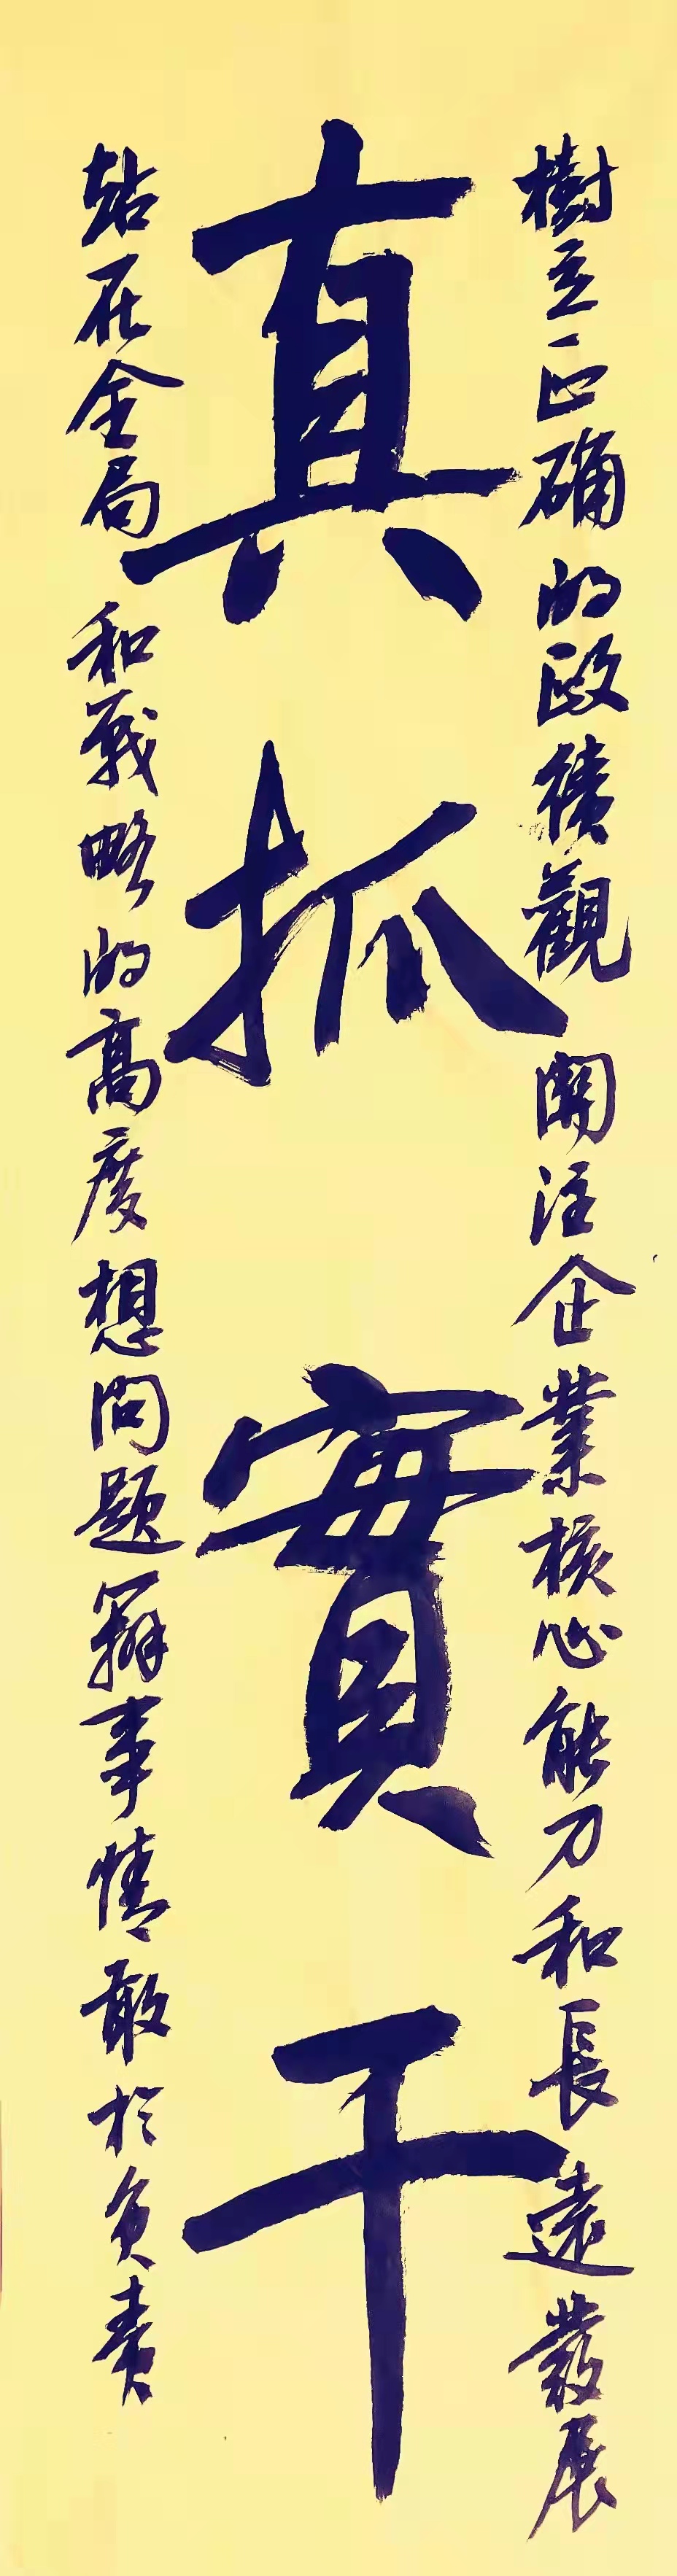 樹立正確的政績觀關注企業核心能力和長遠發展
真抓實干
站在全局和戰略的高度想問題辦事情敢於負責